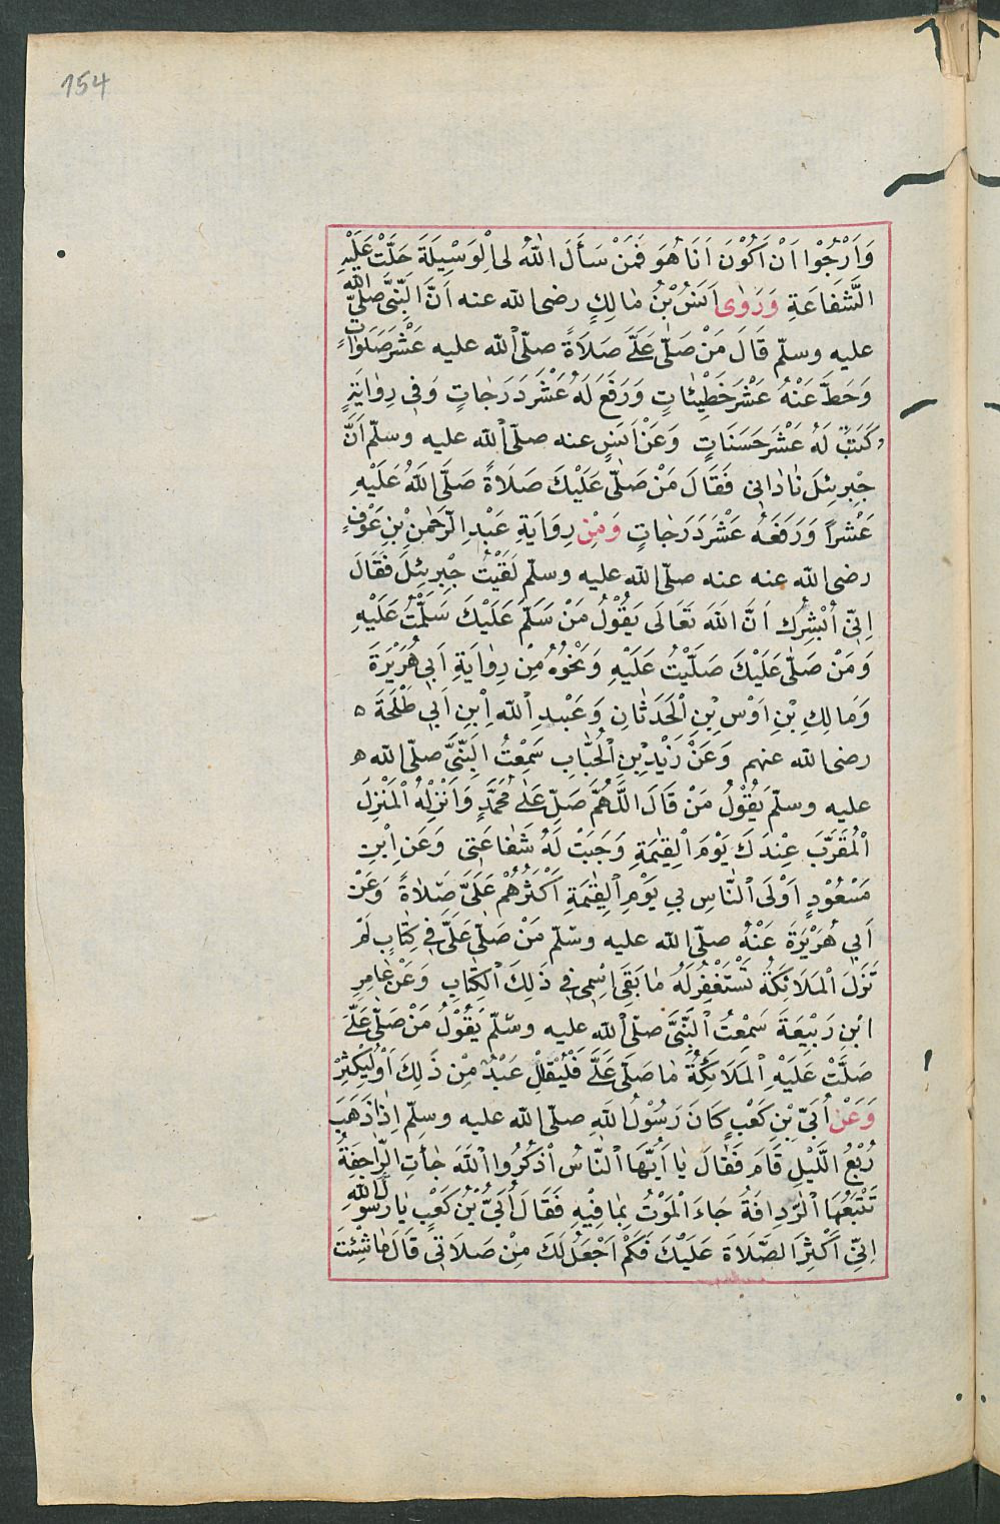 154
وَاَرْجُوْا اَنْ اَكُوْنَ اَنَا هُوَ فَمَنْ سَأَلَ اللّٰهَ لِى الْوَسِيْلَةَ حَلَّتْ عَلَيْهِ
الشَّفَاعَةِ وَرَوٰى اَنَسُ بْنُ مٰالِكٍ رضى الله عنه اَنَّ النَّبِىَّ صلّى الله
عليه وسلّم قَالَ مَنْ صَلّٰى عَلَىَّ صَلَاةً صلّى الله عليه عَشْرَ صَلَوَاتٍ
وَحَطَّ عَنْهُ عَشْرَ خَطِيْئَاتٍ وَرَفَعَ لَهُ عَشْرَ دَرَجٰاتٍ وَفِى رِوٰايَةٍ
وكَتَبَ لَهُ عَشْرَ حَسَنَاتٍ وَعَنْ اَنَسٍ عنه صلّى الله عليه وسلّم اَنَّ
جِبْرِيئِلَ نٰادٰانِى فَقَالَ مَنْ صَلّٰى عَلَيْكَ صَلَاةً صَلَّى اللّٰهُ عَلَيْهِ
عَشْرًا وَرَفَعَهُ عَشْرَ دَرَجٰاتٍ وَمِنْ رِوَايَةِ عَبْدِ الرَّحْمٰنِ بْنِ عَوْفٍ
رضى الله عنه عنه صلّى الله عليه وسلّم لَقَيْتُ جِبْرِيئِلَ فَقَالَ
اِنِّى اُبَشِّرُكَ اَنَّ اللّٰهَ تَعَالَى يَقُوْلُ مَنْ سَلَّمَ عَلَيْكَ سَلَّمْتُ عَلَيْهِ
وَمَنْ صَلّٰى عَلَيْكَ صَلَّيْتُ عَلَيْهِ وَنَحْوُهُ مِنْ رِوٰايَةِ اَبِى هُرَيْرَةَ
وَمَالِكِ بْنِ اَوْسِ بْنِ الْحَدَثٰانِ وَعَبْدِ الله اِبْنِ اَبِى طَلْحَةَ ه
رضى الله عنهم وَعَنْ زَيْدِ بْنِ الْحُبَابِ سَمِعْتُ النَّبِىَّ صلّى الله ه
عليه وسلّم يَقُوْلُ مَنْ قَالَ اللَّهُمَّ صَلِّ عَلٰى مُحَمَّدٍ وَاَنْزِلْهُ الْمَنْزِلَ
الْمُقَرَّبَ عِنْدَكَ يَوْمَ الْقِيٰمَةِ وَجَبَتْ لَهُ شَفٰاعَتِى وَعَنِ اِبْنِ
مَسْعُوْدٍ اَوْلَى النّٰاسِ بِى يَوْمَ الْقِيٰمَةِ اَكْثَرُهُمْ عَلَىَّ صَلٰاةً وَعَنْ
اَبِى هُرَيْرَةَ عَنْهُ صلّى الله عليه وسلّم مَنْ صَلّٰى عَلَىَّ فِى كِتٰابٍ لَمْ
تَزَلِ الْمَلَائِكَةُ تَسْتَغْفِرُ لَهُ مٰا بَقِىَ اِسْمِى فِى ذٰلِكَ الْكِتٰابِ وَعَنْ عٰامِرِ
ابْنِ رَبِيْعَةَ سَمِعْتُ النَّبِىَّ صلّى الله عليه وسلّم يَقُوْلُ مَنْ صَلّٰى عَلَىَّ
صَلَّتْ عَلَيْهِ الْمَلَائِكَةُ مٰا صَلّٰى عَلَىَّ فَلْيُقَلِّلْ عَبْدٌ مِنْ ذٰلِكَ اَوْ لِيُكْثِرْ
وَعَنْ اُبَىِّ بْنِ كَعْبٍ كَانَ رَسُوْلُ اللّٰهِ صلّى الله عليه وسلّم اِذٰا ذَهَبَ
رُبْعُ اللَّيْلِ قَامَ فَقٰالَ يٰا اَيُّهَا النَّاسُ اُذْكُرُوا اللّٰهَ جٰأَتِ الرَّاجِفَةُ
تَتْبَعُهَا الرّٰدِافَةُ جَاءَ الْمَوْتُ بِمٰا فِيْهِ فَقَالَ اُبَىُّ بْنُ كَعْبٍ يٰا رَسُولَ اللّٰهِ
اِنِّى اُكْثِرُ الصَّلَاةَ عَلَيْكَ فَكَمْ اَجْعَلُ لَكَ مِنْ صَلَاتِى قَالَ مٰا شِئْتَ